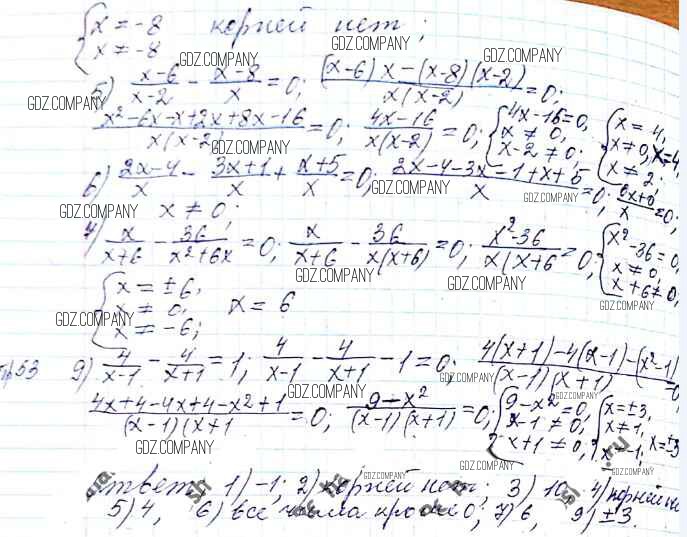 x = -8 корней нет;
x ≠ -8
GDZ.COMPANY GDZ.COMPANY GDZ.COMPANY
5) (x-6)/(x-2) - (x-8)/x = 0; ((x-6)x-(x-8)(x-2))/(x(x-2)) = 0;
GDZ.COMPANY
(4x-16)/(x(x-2)) = 0; {4x-16=0, x≠0, x-2≠0; {x=4, x≠0, x≠2; x=4,
GDZ.COMPANY GDZ.COMPANY GDZ.COMPANY
6) (2x-4)/x - (3x+1)/x + (x+5)/x = 0; (2x-4-3x-1+x+5)/x = 0;
GDZ.COMPANY GDZ.COMPANY
x ≠ 0;
GDZ.COMPANY GDZ.COMPANY
7) x/(x+6) - 36/(x²+6x) = 0; x/(x+6) - 36/(x(x+6)) = 0; (x²-36)/(x(x+6 = 0; {x²-36=0, x≠0, x+6≠0,
GDZ.COMPANY GDZ.COMPANY GDZ.COMPANY
{x = ±6, x ≠ 0, x ≠ -6; x = 6
GDZ.COMPANY GDZ.COMPANY
53 9) 4/(x-1) - 4/(x+1) = 1; 4/(x-1) - 4/(x+1) - 1 = 0; (4(x+1)-4(x-1)-(x²-1))/((x-1)(x+1) = 0
GDZ.COMPANY GDZ.COMPANY
(4x+4-4x+4-x²+1)/((x-1)(x+1) = 0; (9-x²)/((x-1)(x+1)) = 0; {9-x²=0, x-1≠0, x+1≠0, {x=±3, x≠1, x≠-1, x=±3
GDZ.COMPANY GDZ.COMPANY GDZ.COMPANY
Ответ: 1) -1; 2) корней нет; 3) 10, 4) корней
5) 4, 6) все числа кроме 0; 7) 6, 9) ±3.